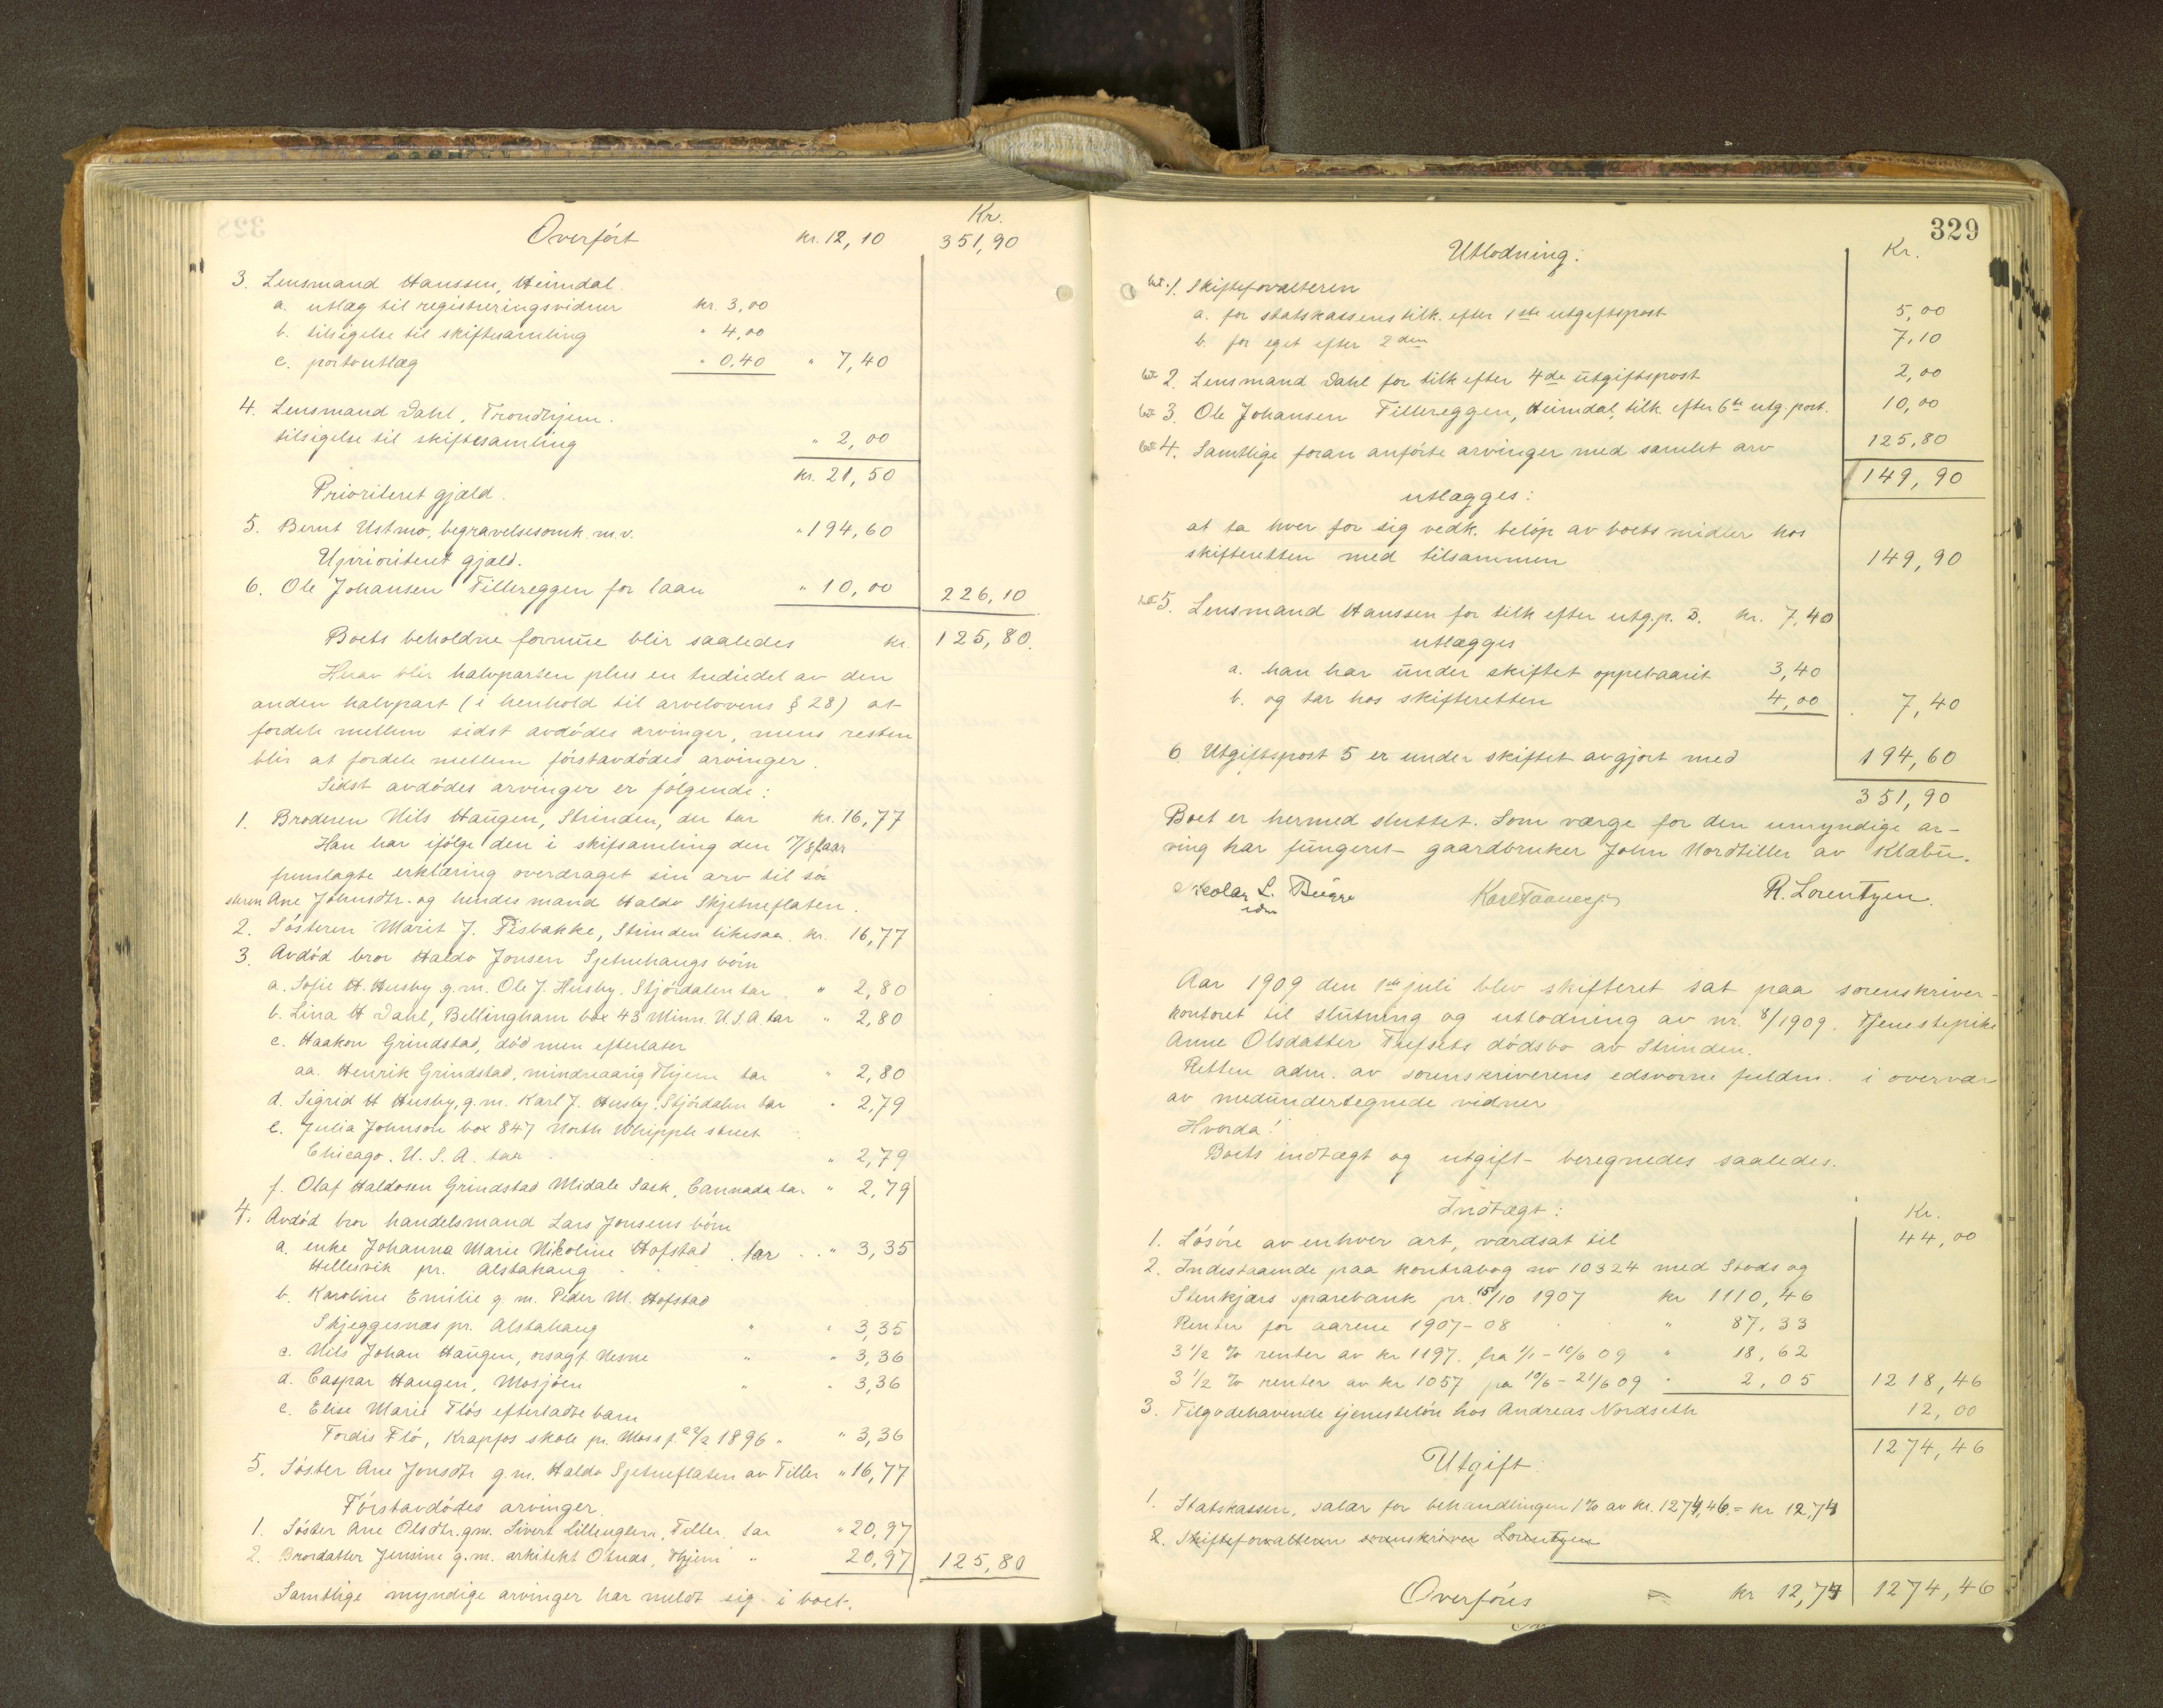 Kr.
Overført kr. 12,10 351,90
3. Lensmand Hanssen, Heimdal.
a. utlæg til registreringsvidner kr. 3,00
b. tilsigelse til skiftesamling " 4,00
c. portoutlæg " 0,40 " 7,40
4. Lensmand Dahl, Trondhjem.
tilsigelse til skiftesamling " 2,00
kr. 21,50
Prioriteret gjæld.
5. Bernt Ustmo, begravelsesomk. m.v. " 194,60
Uprioriteret gjæld.
6. Ole Johansen Tillereggen for laan " 10,00 226,10
Boets beholdne formue blir saaledes kr. 125,80.
Herav blir halvparten plus en trediedel av den
anden halvpart (i henhold til arvelovens § 28) at
fordele mellem sidst avdødes arvinger, mens resten
blir at fordele mellem førstavdødes arvinger.
Sidst avdødes arvinger er følgende:
1. Broderen Nils Haugen, Strinden, der tar kr. 16,77
Han har ifølge den i skifsamling den 17/8 f aar
fremlagte erklæring overdraget sin arv til sø-
steren Ane Johnsdtr. og hendes mand Haldo Skjetneflaten.
2. Søsteren Marit J. Risbakke, Strinden likesaa. kr. 16,77
3. Avdød bror Haldo Jonsen Sjetnehaugs børn
a. Sofie H. Husby g.m. Ole J. Husby. Stjørdalen tar " 2,80
b. Lina H Dahl, Bellingham box 43 Minn. U.S.A. tar " 2,80
c. Haakon Grindstad, død men efterlater
aa. Henrik Grindstad, mindreaarig Thjem tar " 2,80
d. Sigrid H Husby, g.m. Karl J. Husby, Stjørdalen tar " 2,79
e. Julia Johnson box 847 North Whipple street
Chicago. U.S.A. tar " 2,79
f. Olaf Haldosen Grindstad Midale Sask, Cannada tar " 2,79
4. Avdød bror handelsmand Lars Jonsens børn
a. enke Johanna Marie Nikoline Hofstad tar " 3,35
Hellesvik pr. Alstahaug
b. Karoline Emilie g m. Peder M. Hofstad
Skjeggesnæs pr. Alstahaug " " 3,35
c. Nils Johan Haugen, Nesne " " 3,36
d. Caspar Haugen, Mosjøen " " 3,36
e. Elise Marie Fløs efterladte barn
Tordis Flø, Krapfos skole pr. Moss f. 22/2 1896 " " 3,36
5. Søster Ane Jonsdtr g.m. Haldo Sjetneflaten av Tiller " 16,77
Førstavdødes arvinger.
1. Søster Ane Olsdtr. gm. Sivert Lilleuglen, Tiller, tar " 20,97
2. Brordatter Jensine g.m. arkitekt Thjem " 20,97 125,80
Samtlige myndige arvinger har meldt sig i boet.
329
Utlodning: Kr.
1. Skifteforvalteren
a. for statskassens tilk. efter 1ste utgiftspost 5,00
b. for eget efter 2den 7,10
2. Lensmand Dahl for tilk efter 4de utgiftspost 2,00
3. Ole Johansen Tillereggen, Heimdal, tilk. efter 6te utg.post. 10,00
4. Samtlige foran anførte arvinger med samlet arv 125,80
149,90
utlægges:
at ta hver for sig vedk. beløp av boets midler hos
skifteretten med tilsammen 149,90
5. Lensmand Hanssen for tilk efter utg.p. 3. kr. 7,40
utlægges
a. han har under skiftet oppebaaret 3,40
b. og tar hos skifteretten 4,00 7,40
6. Utgiftspost 5 er under skiftet avgjort med 194,60
351,90
Boet er hermed sluttet. Som værge for den umyndige ar-
ving har fungeret gaardbruker John Nordtiller av Klæbu.
R. Lorentzen.
Aar 1909 den 1ste juli blev skifteret sat paa sorenskriver-
kontoret til slutning og utlodning av nr. 8/1909. Tjenestepike
Anne Olsdatter Trefsets dødsbo av Strinden.
Retten adm. av sorenskriverens edsvorne fuldm. i overvær
av medundertegnede vidner
Hvorda!
Boets indtægt og utgift beregnedes saaledes.
Indtægt: Kr.
1. Løsøre av enhver art, værdsat til 44,00
2. Indestaaende paa kontrabog no 10324 med Stods og
Stenkjærs sparebank pr. 15/10 1907 kr 1110,46
Renter for aarene 1907-08 " 87,33
3 1/2 % renter av kr 1197. fra 1/1 - 10/6 09 " 18,62
3 1/2 % renter av kr 1057 fra 10/6 - 21/6 09 " 2,05 1218,46
3. Tilgodehavende tjenesteløn hos Andreas Nordseth 12,00
1274,46
Utgift:
1. Statskassen, salær for behandlingen 1% av kr. 1274,46 = kr 12,74
2. Skifteforvalteren sorenskriver Lorentzen
Overføres kr 12,74 1274,46